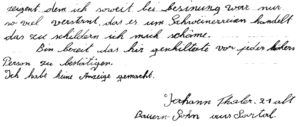 zeugent. dem ich soweit bei besinung war nur
so viel verstant, das es um Schweinereien handelt
das zu schildern ich mich schäme.
Bin bereit das hir geschilderte vor jeder
Person zu bestätigen.
Ich habe keine Anzeige gemacht.
Johann Thaler. 21 alt
Bauern-Sohn aus